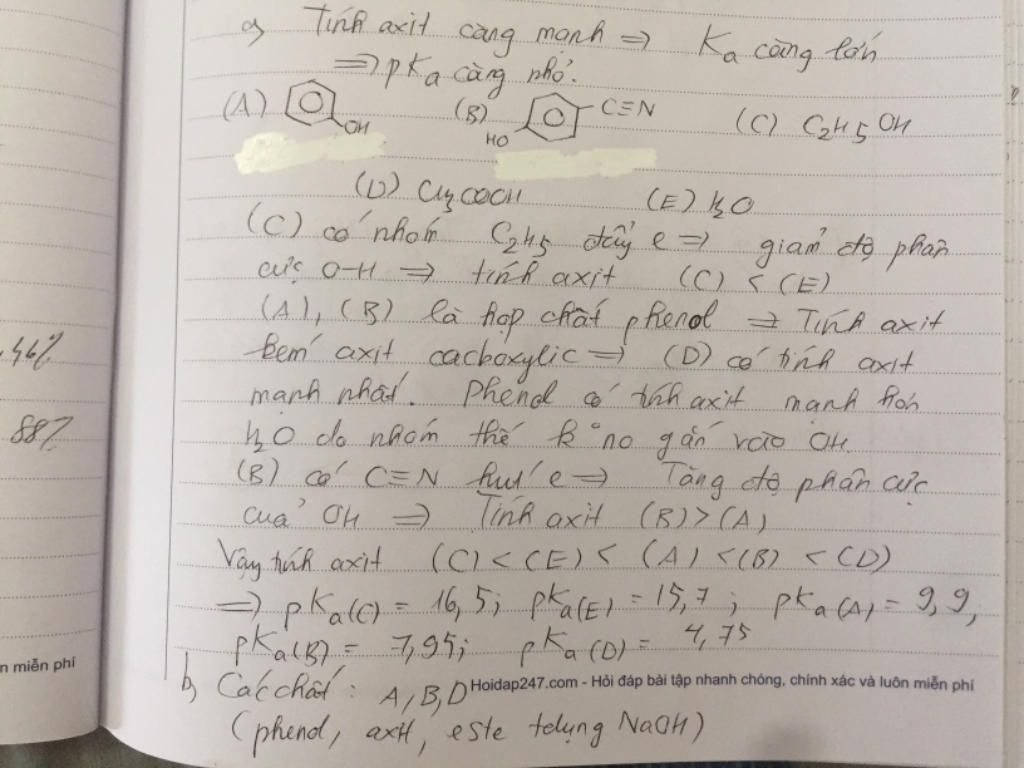 a, Tính axit càng mạnh => Ka càng lớn
=> pKa càng nhỏ.
(A) OH (B) HO C≡N (C) C2H5OH
(D) CH3COOH (E) H2O
(C) có nhóm C2H5 đẩy e => giảm độ phân
cực O-H => tính axit (C) < (E)
(A), (B) là hợp chất phenol => Tính axit
kém axit cacboxylic => (D) có tính axit
mạnh nhất. Phenol có tính axit mạnh hơn
H2O do nhóm thế k° no gắn vào OH.
(B) có C≡N hút e => Tăng độ phân cực
của OH => Tính axit (B) > (A)
Vậy tính axit (C) < (E) < (A) < (B) < (D)
=> pKa(C) = 16,5; pKa(E) = 15,7; pKa(A) = 9,9;
pKa(B) = 7,95; pKa(D) = 4,75
b, Các chất: A, B, D
(phenol, axit, este tdụng NaOH)
Hoidap247.com - Hỏi đáp bài tập nhanh chóng, chính xác và luôn miễn phí
,46%
88%
n miễn phí